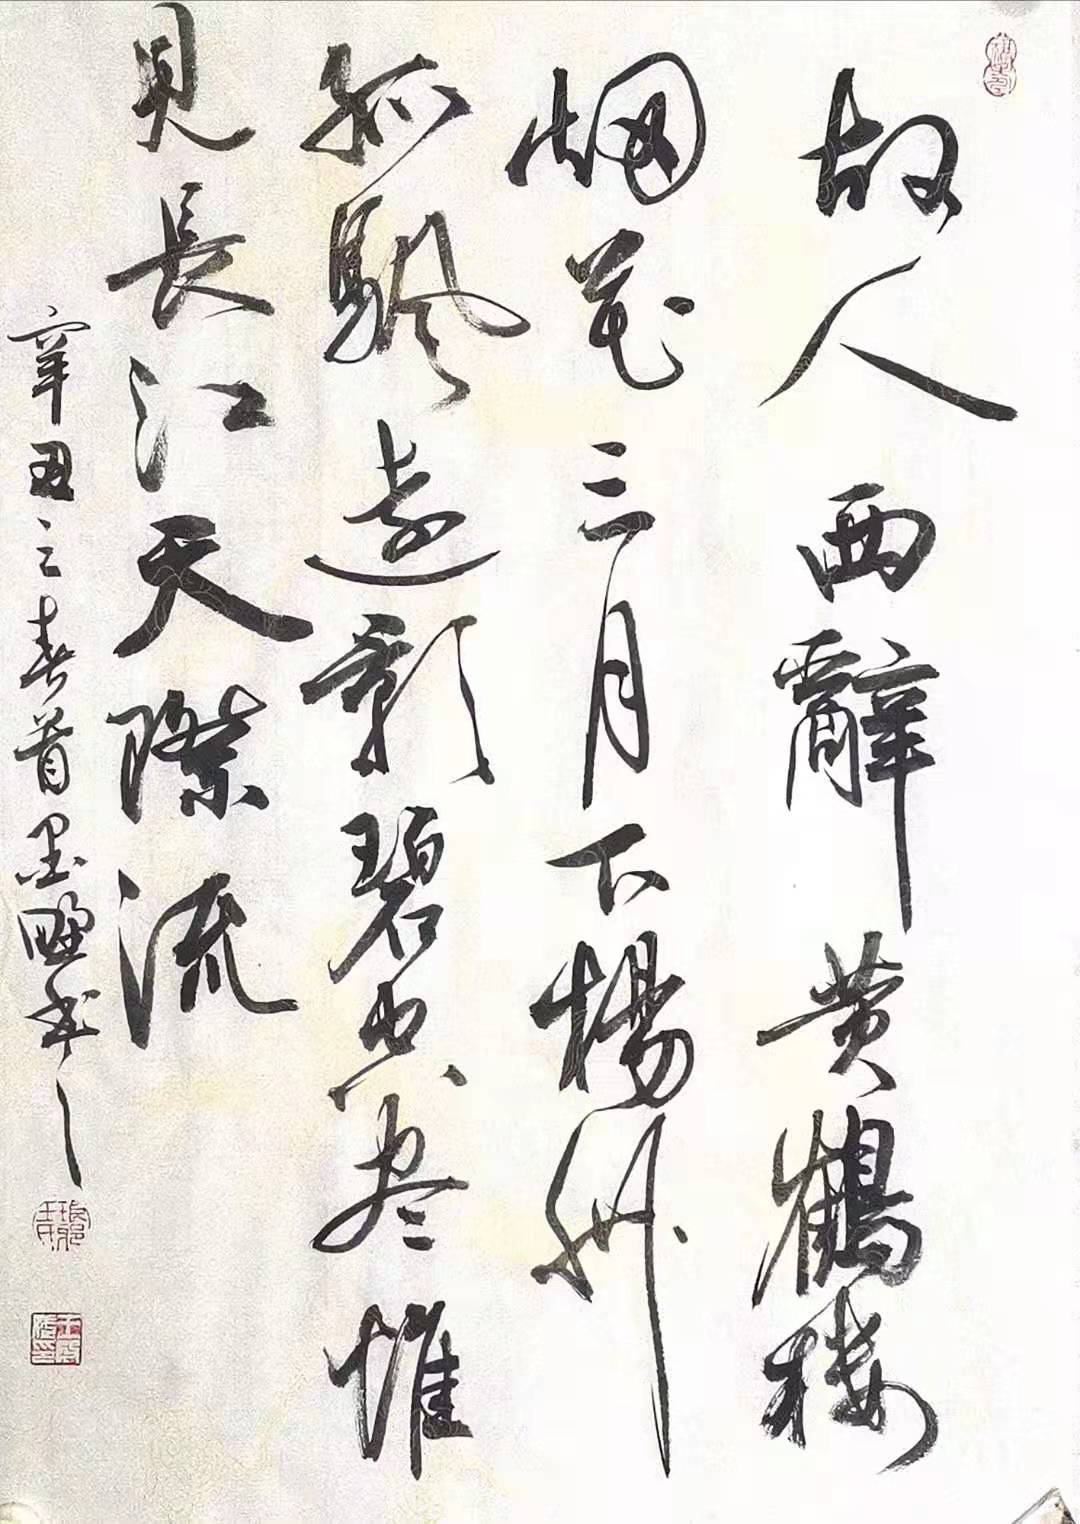 故人西辭黄鶴楼
烟花三月下揚州
孤帆遠影碧空尽惟
見長江天際流
辛丑之春首墨野书